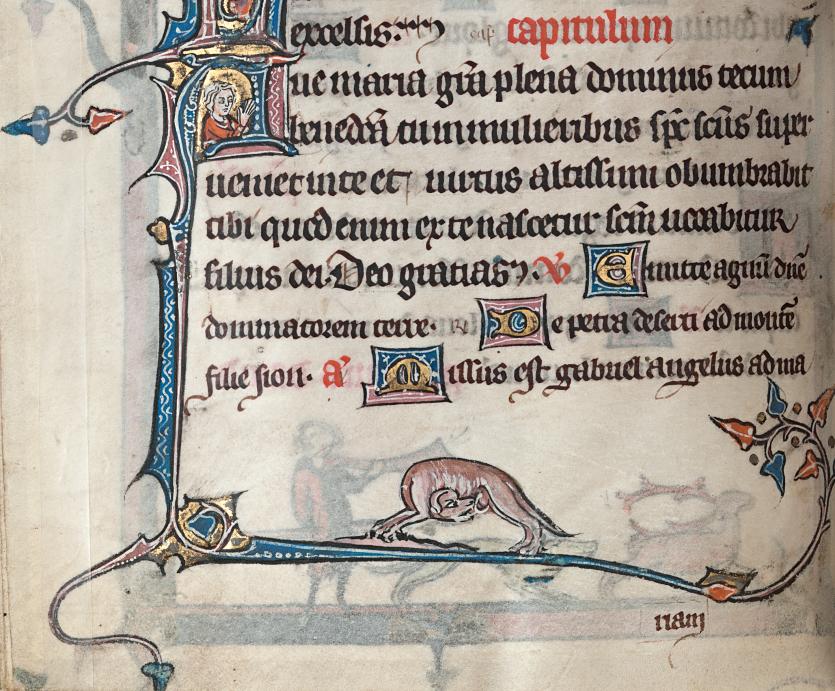 excelsis. capitulum
Aue maria grã plena dominus tecum
benedc̃a tu in mulieribus sp̃c sc̃us super
ueniet in te et uirtus altissimi obumbrabit
tibi quod enim ex te nascetur sc̃m uocabitur
filius dei. Deo gratias. V̾ Emitte agnũ dñe
dominatorem terre. R̾ De petra deserti ad montẽ
filie sion. a᷎ Missus est gabriel angelus ad ma
riam